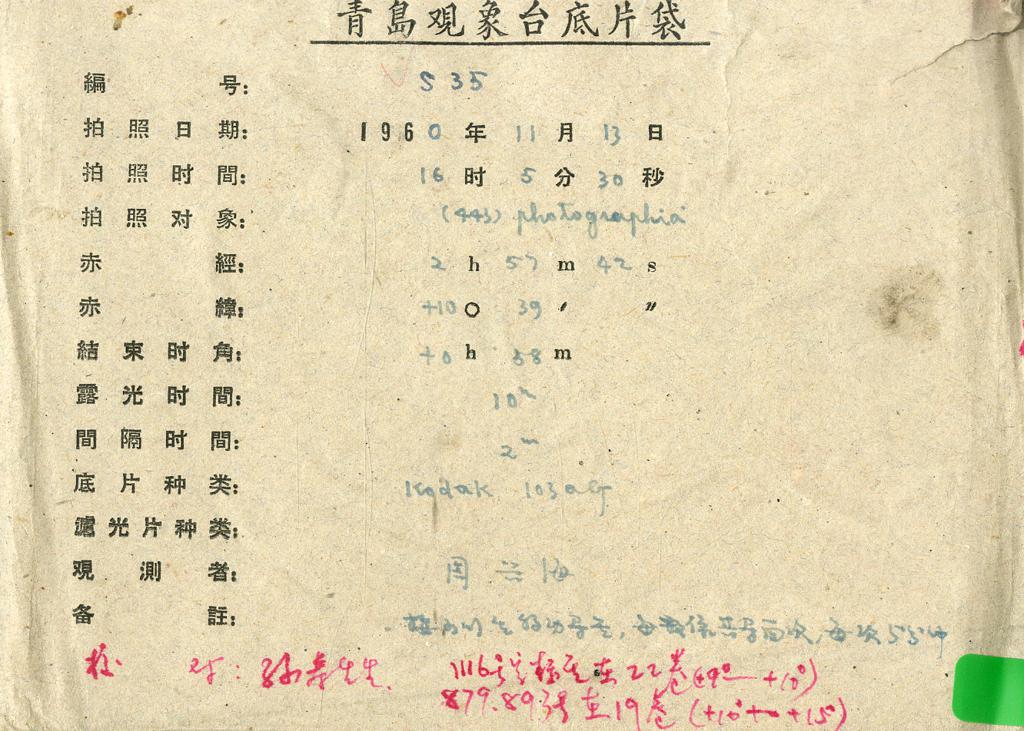 青島观象台底片袋
編号: S 35
拍照日期: 1960年11月13日
拍照时間: 16时5分30秒
拍照对象: (443) photographia
赤經: 2h 57m 42s
赤緯: +10° 39′ ″
結束时角: +0h 58m
露光时間: 10m
間隔时間: 2m
底片种类: Kodak 103aG
濾光片种类:
观測者: 周兴海
备註:
校对: 1116号 在22卷(+9°—+10°)
879.893号在19卷(+10° to +15°)